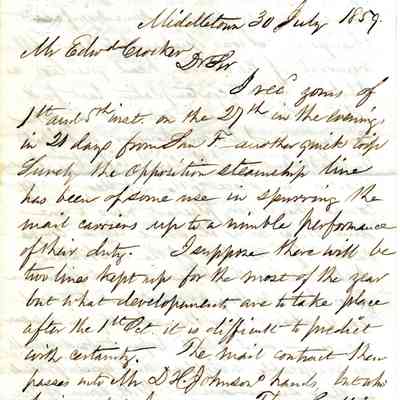 Middletown 30 July 1859.
Mr Edwd Crocker
Dr Sir
I recd yours of
1st and 5th inst. on the 27th in the evening
in 21 days from San F another quick trip
Surely the Opposition steamship line
has been of some use in spurring the
mail carriers up to a nimble performance
of their duty. I suppose there will be
two lines kept up for the most of the year
but what developements are to take place
after the 1st Oct it is difficult to predict
with certainty. The mail contract then
passes into Mr D H Johnsons hands, but who